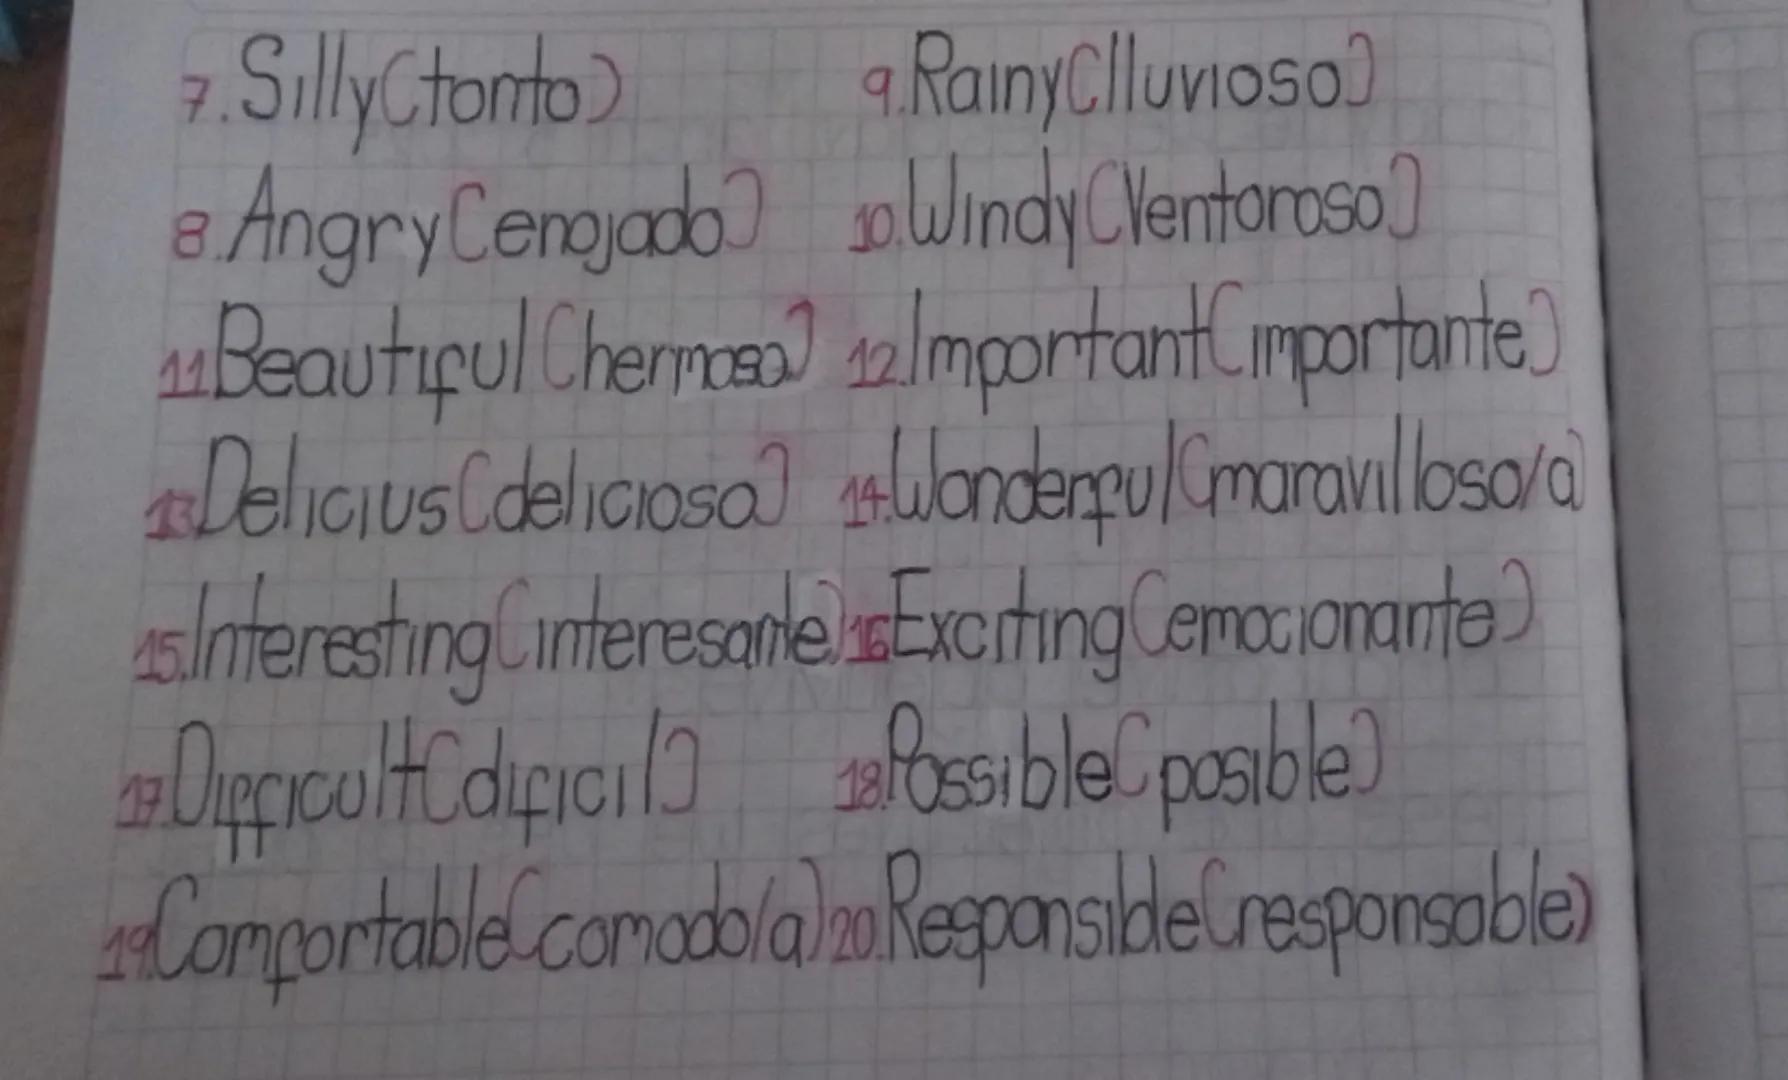 7. Silly (tonto) 9. Rainy (lluvioso)
8. Angry (enojado) 10. Windy (Ventoroso)
11. Beautiful (hermoso) 12. Important (importante)
13. Delicius (delicioso) 14. Wonderful (maravilloso/a)
15. Interesting (interesante) 16. Exciting (emocionante)
17. Difficult (dificil) 18. Possible (posible)
19. Comfortable (comodo/a) 20. Responsible (responsable)